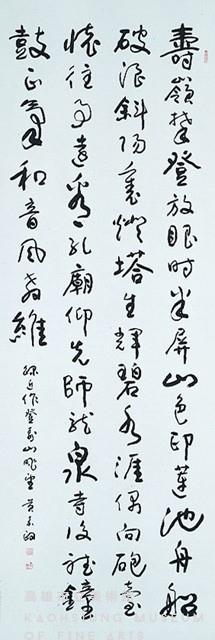 壽嶺攀登放眼時半屏山色印蓮池舟船
破浪斜陽裏燈塔生輝碧水涯偶向砲臺
懷往事遠看孔廟仰先師龍泉寺後聽鐘
鼓正氣和音風教維
近作登壽山眺望 黃
高雄市立美術館
KAOHSIUNG MUSEUM
OF FINE ARTS